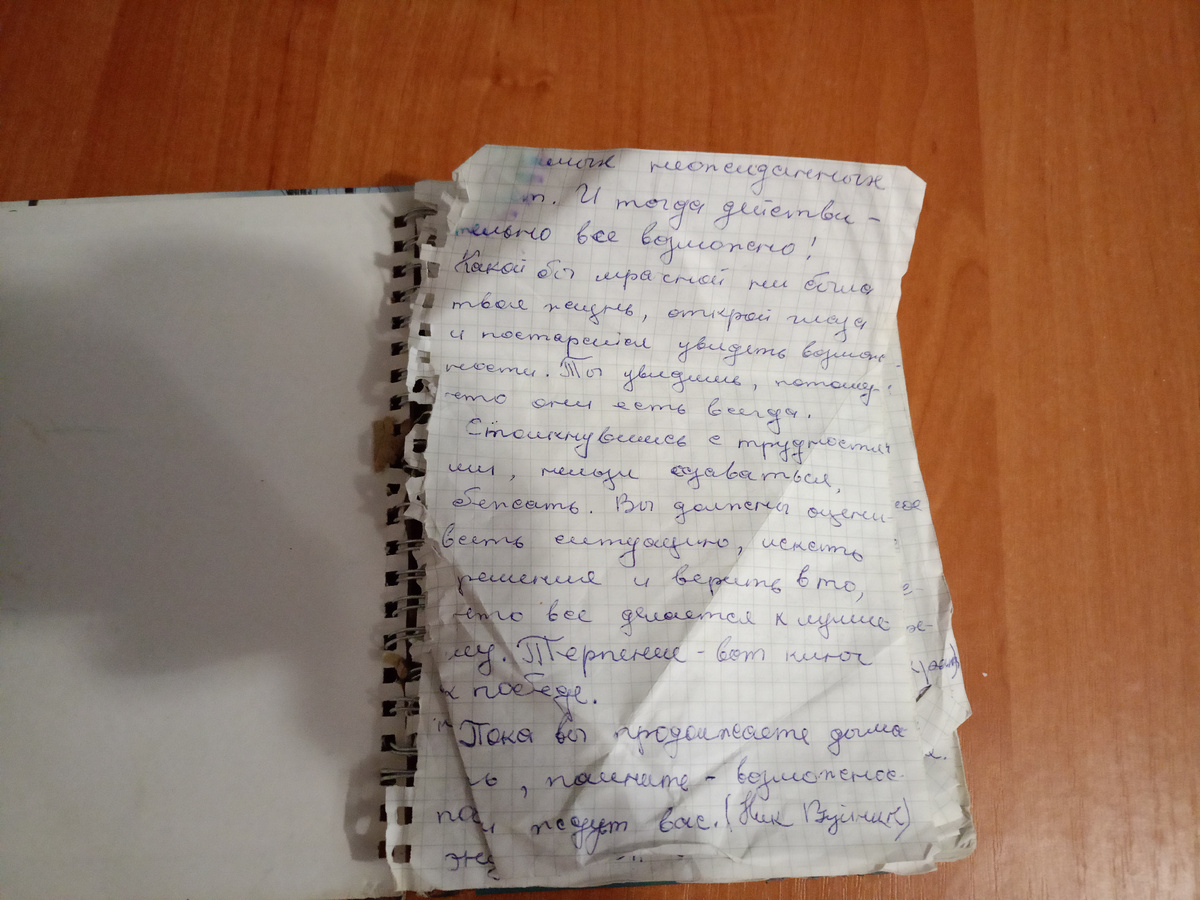 неожиданных
т. И тогда действи-
тельно все возможно!
Какой бы мрачной ни была
твоя жизнь, открой глаза
и постарайся увидеть возмож-
ности. Ты увидишь, потому-
что они есть всегда.
Столкнувшись с трудностя
ми, нельзя сдаваться,
бежать. Вы должны оцени-
вать ситуацию, искать
решения и верить в то,
что все делается к лучше
му. Терпение - вот ключ
к победе.
Пока вы продолжаете дыша
ь, помните - возможнос
ждут вас. (Ник Вуйчич)